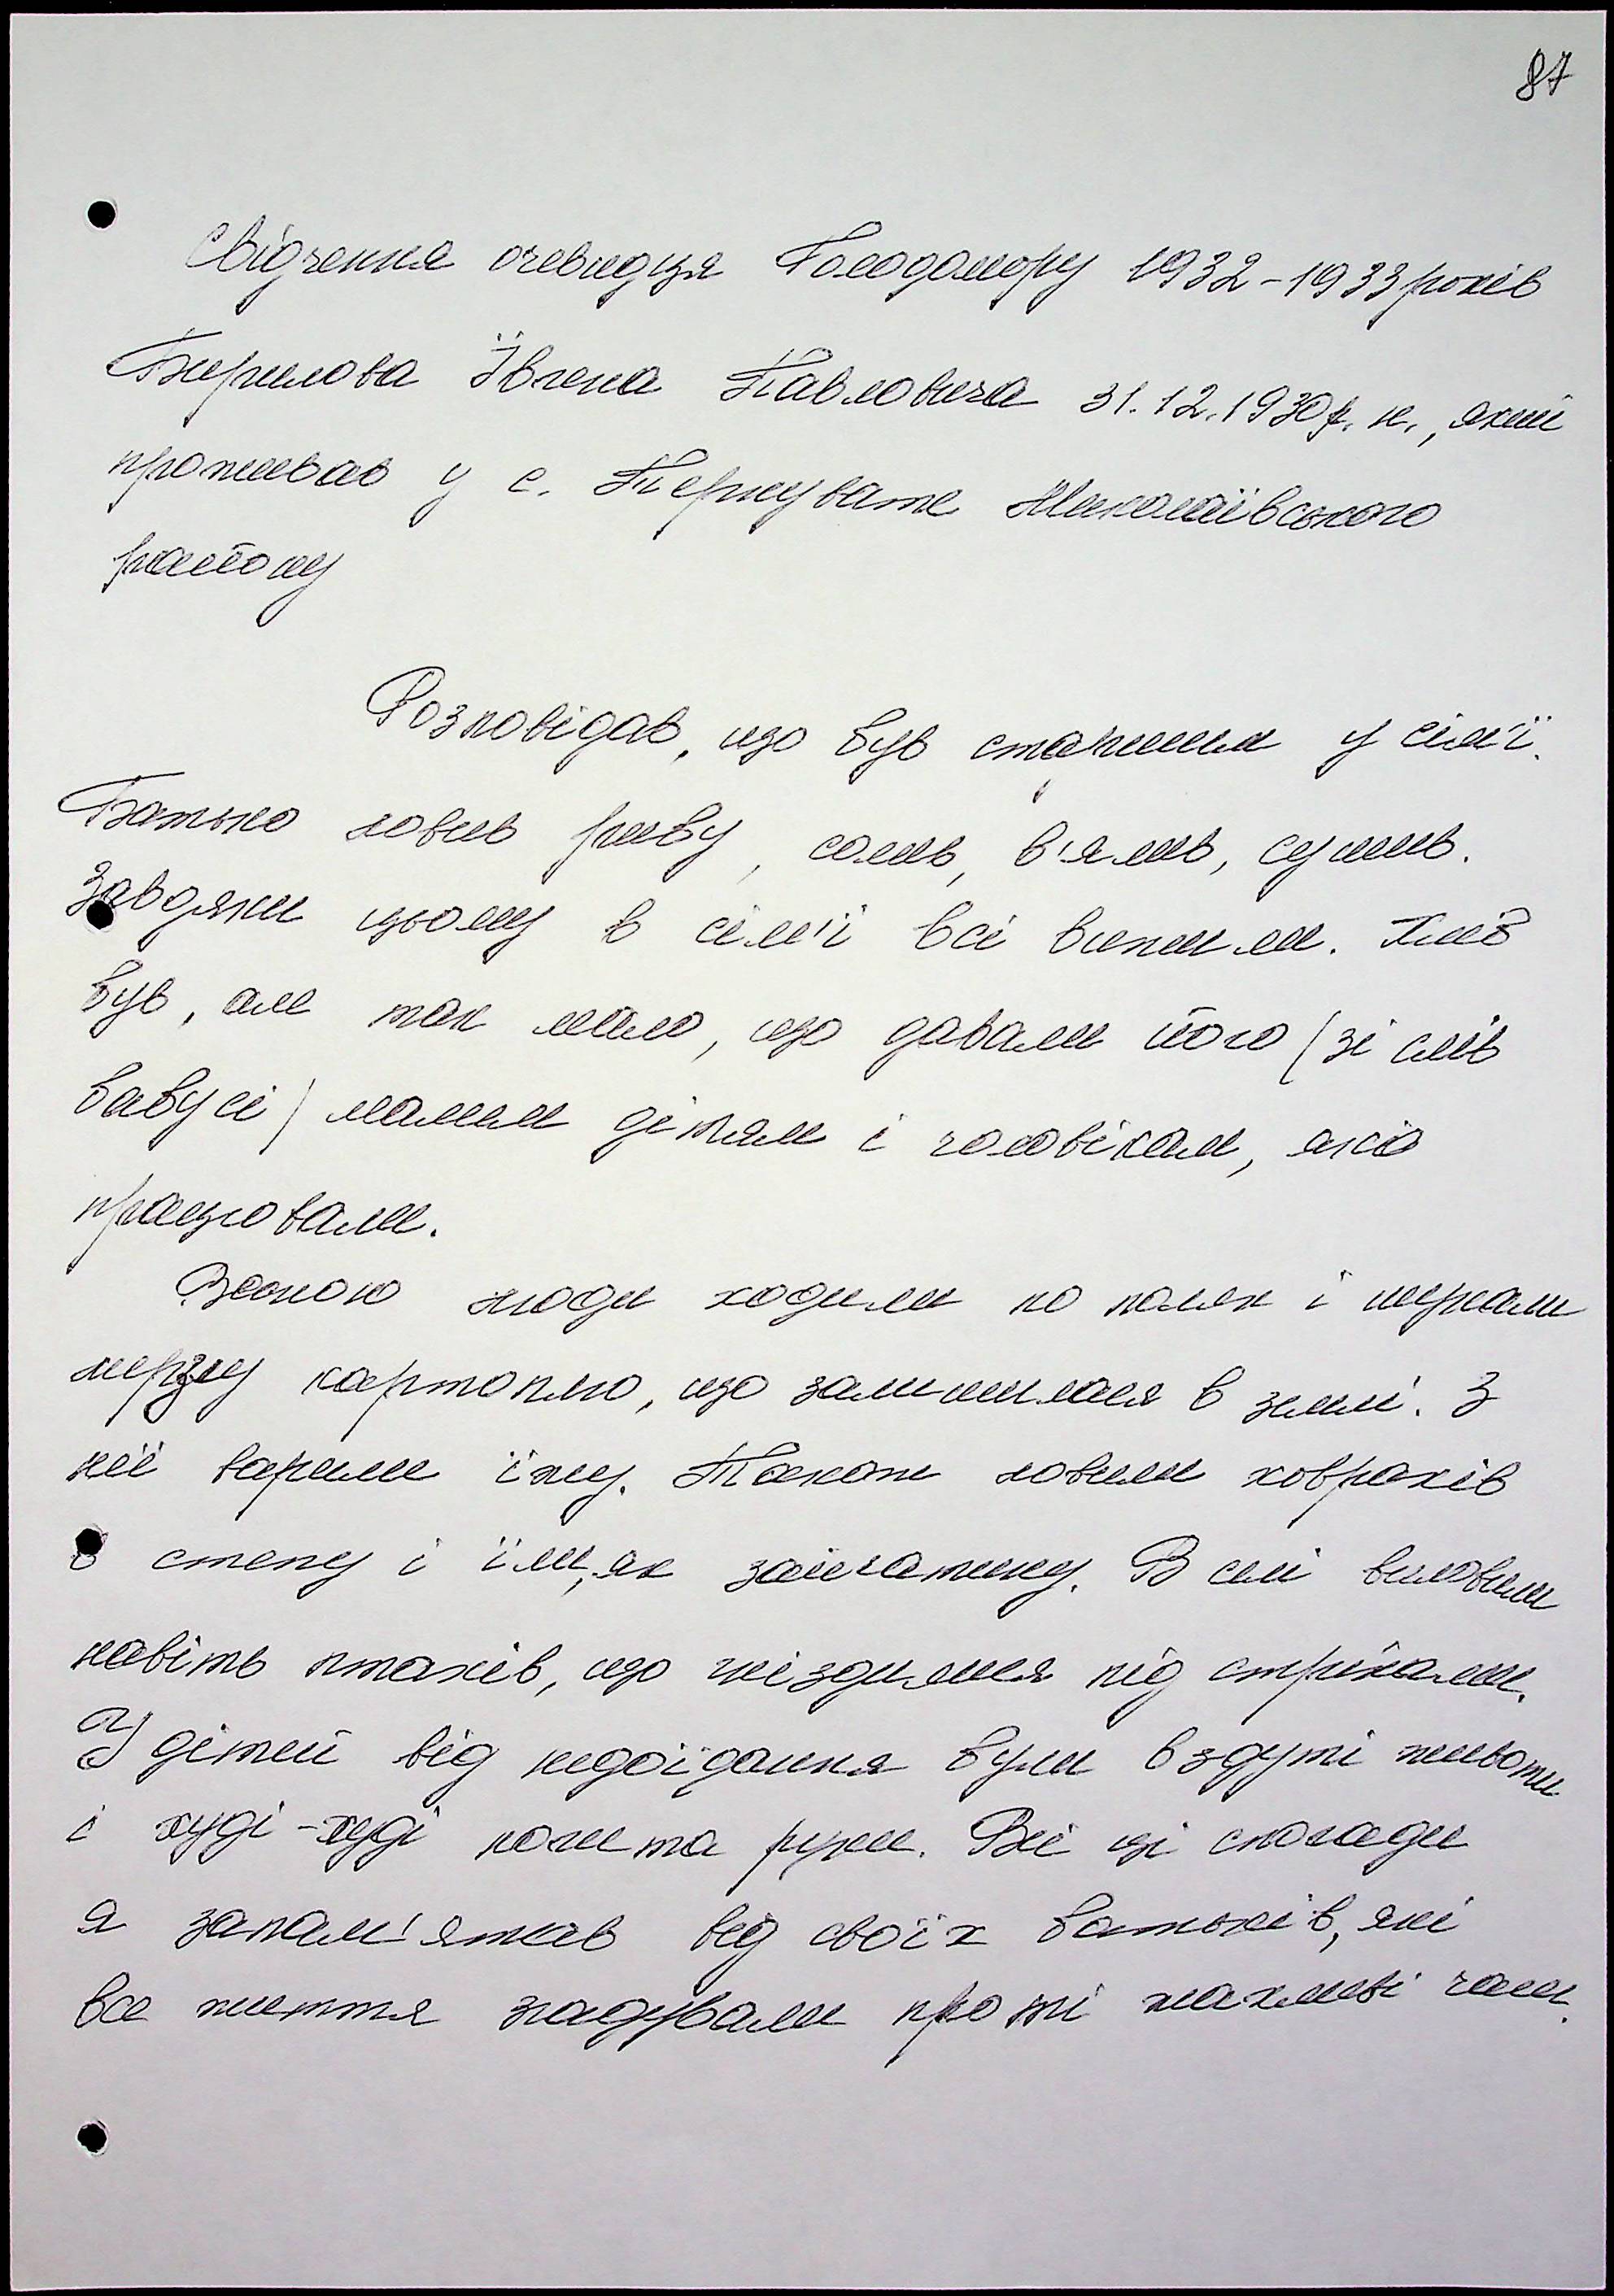 87
Свідчення очевидця Голодомору 1932-1933 років
Бирилова Івгена Павловича 31.12.1930 р. н., який
проживав у с. Тернувате Миколаївського
району
Розповідав, що був старшим у сім'ї.
Батько ловив рибу, солив, в'ялив, сушив.
Завдяки цьому в сім'ї всі вижили. Хліб
був, але так мало, що давали його (зі слів
бабусі) малим дітям і чоловікам, які
працювали.
Весною люди ходили по полях і шукали
мерзлу картоплю, що залишилася в землі. З
неї варили їжу. Також ловили ховрахів
в степу і їли, як зайчатину. В селі виловили
навіть птахів, що гніздилися під стріхами.
У дітей від недоїдання були вздуті животи
і худі-худі ноги та руки. Всі ці спогади
я запам'ятав від своїх батьків, які
все життя згадували про ті жахливі часи.